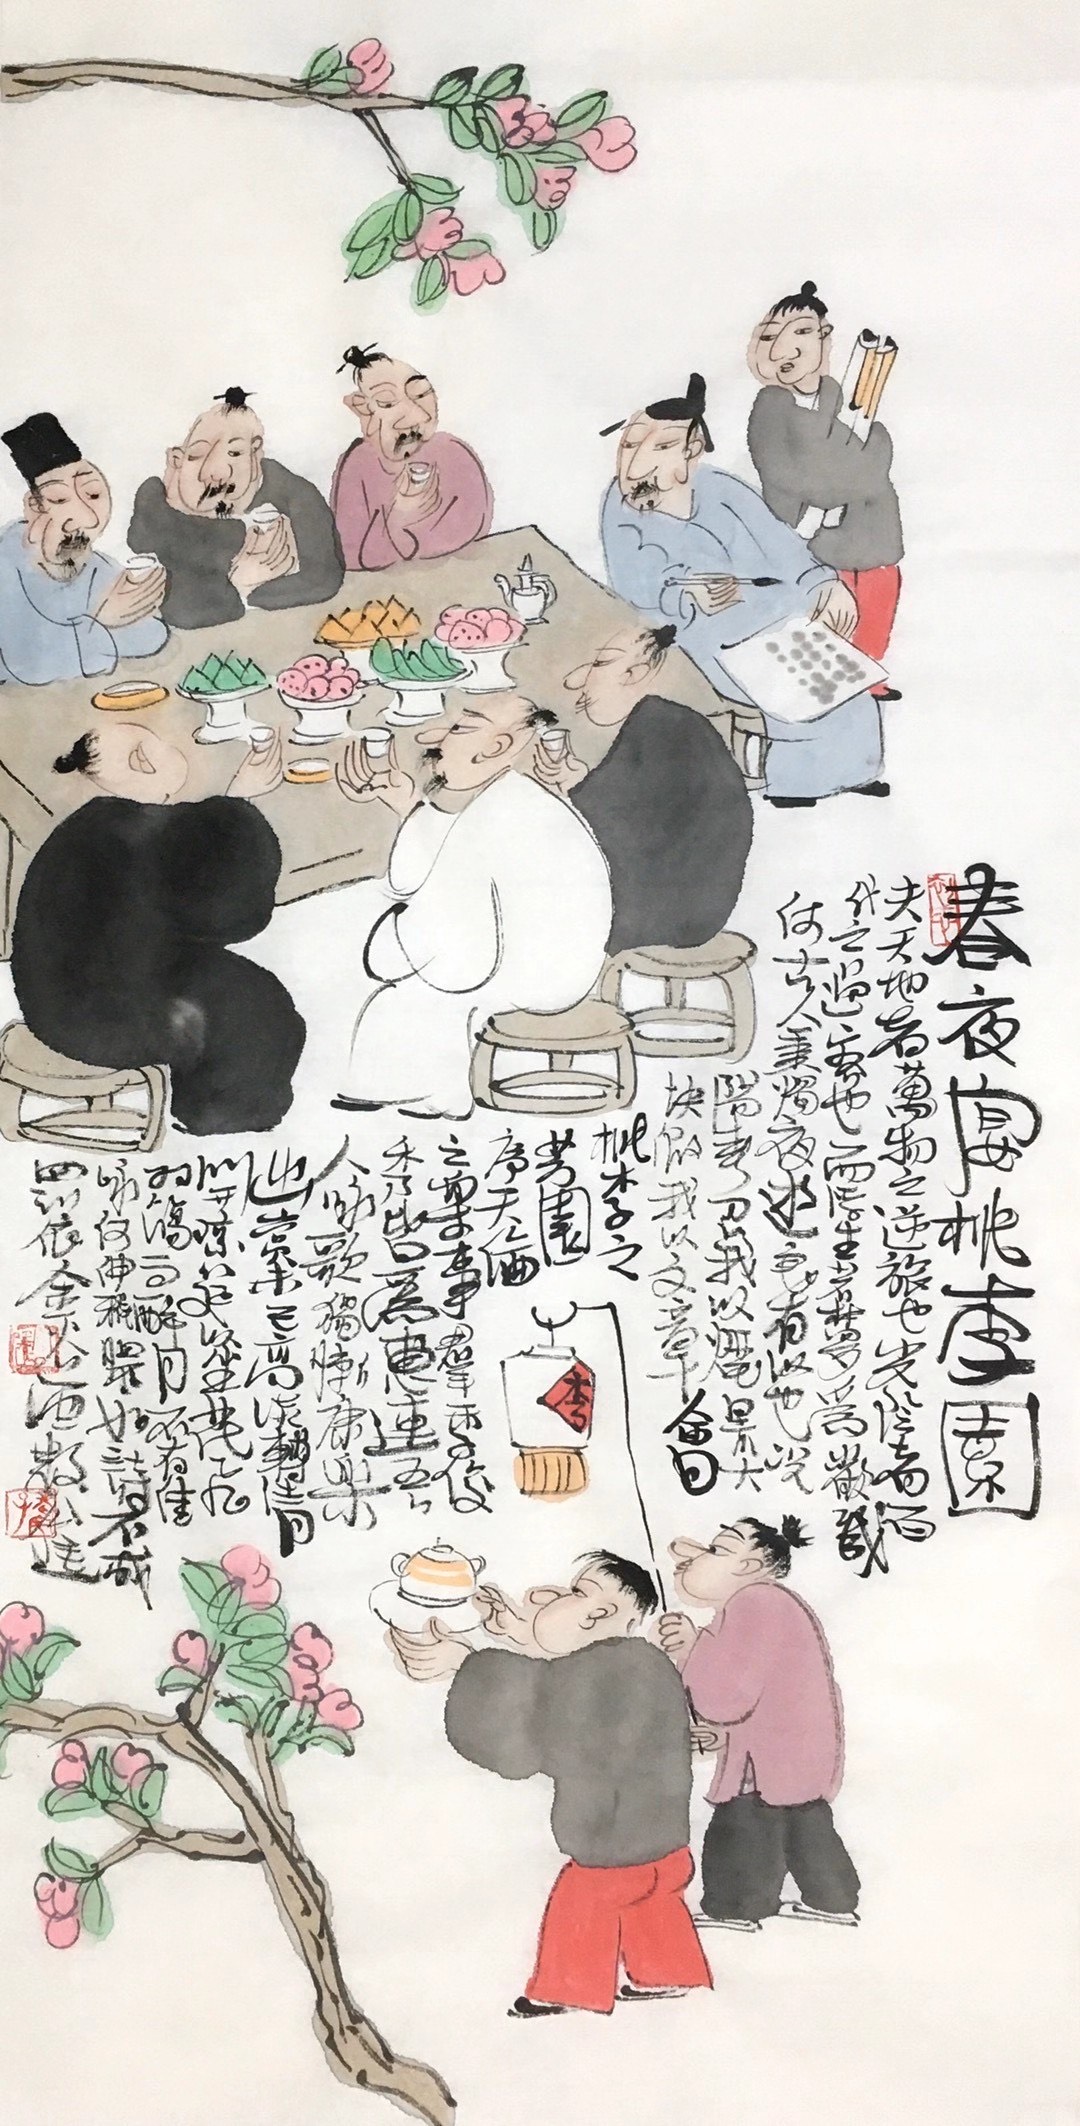 春夜宴桃李園
夫天地者萬物之逆旅也光陰者百
代之過客也而浮生若夢為歡幾
何古人秉燭夜遊良有以也況
陽春召我以煙景大
塊假我以文章會
桃李之
芳園
序天倫
之樂事群季俊
秀皆為惠連吾
人詠歌獨慚康樂
幽賞未已高談轉清
開瓊筵以坐花飛
羽觴而醉月不有佳
詠何伸雅懷如詩不成
罰依金谷酒數
李